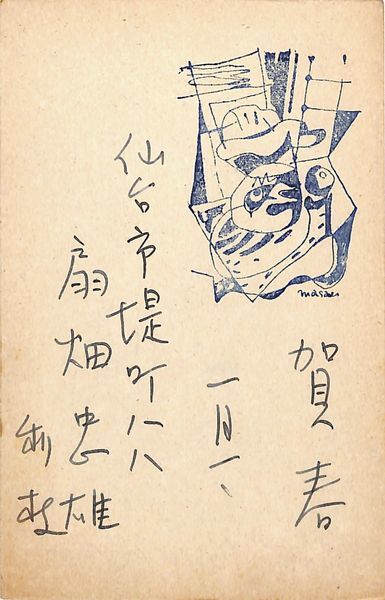 賀春
一月一日
仙台市堤町八八
扇畑忠雄
利枝
masao